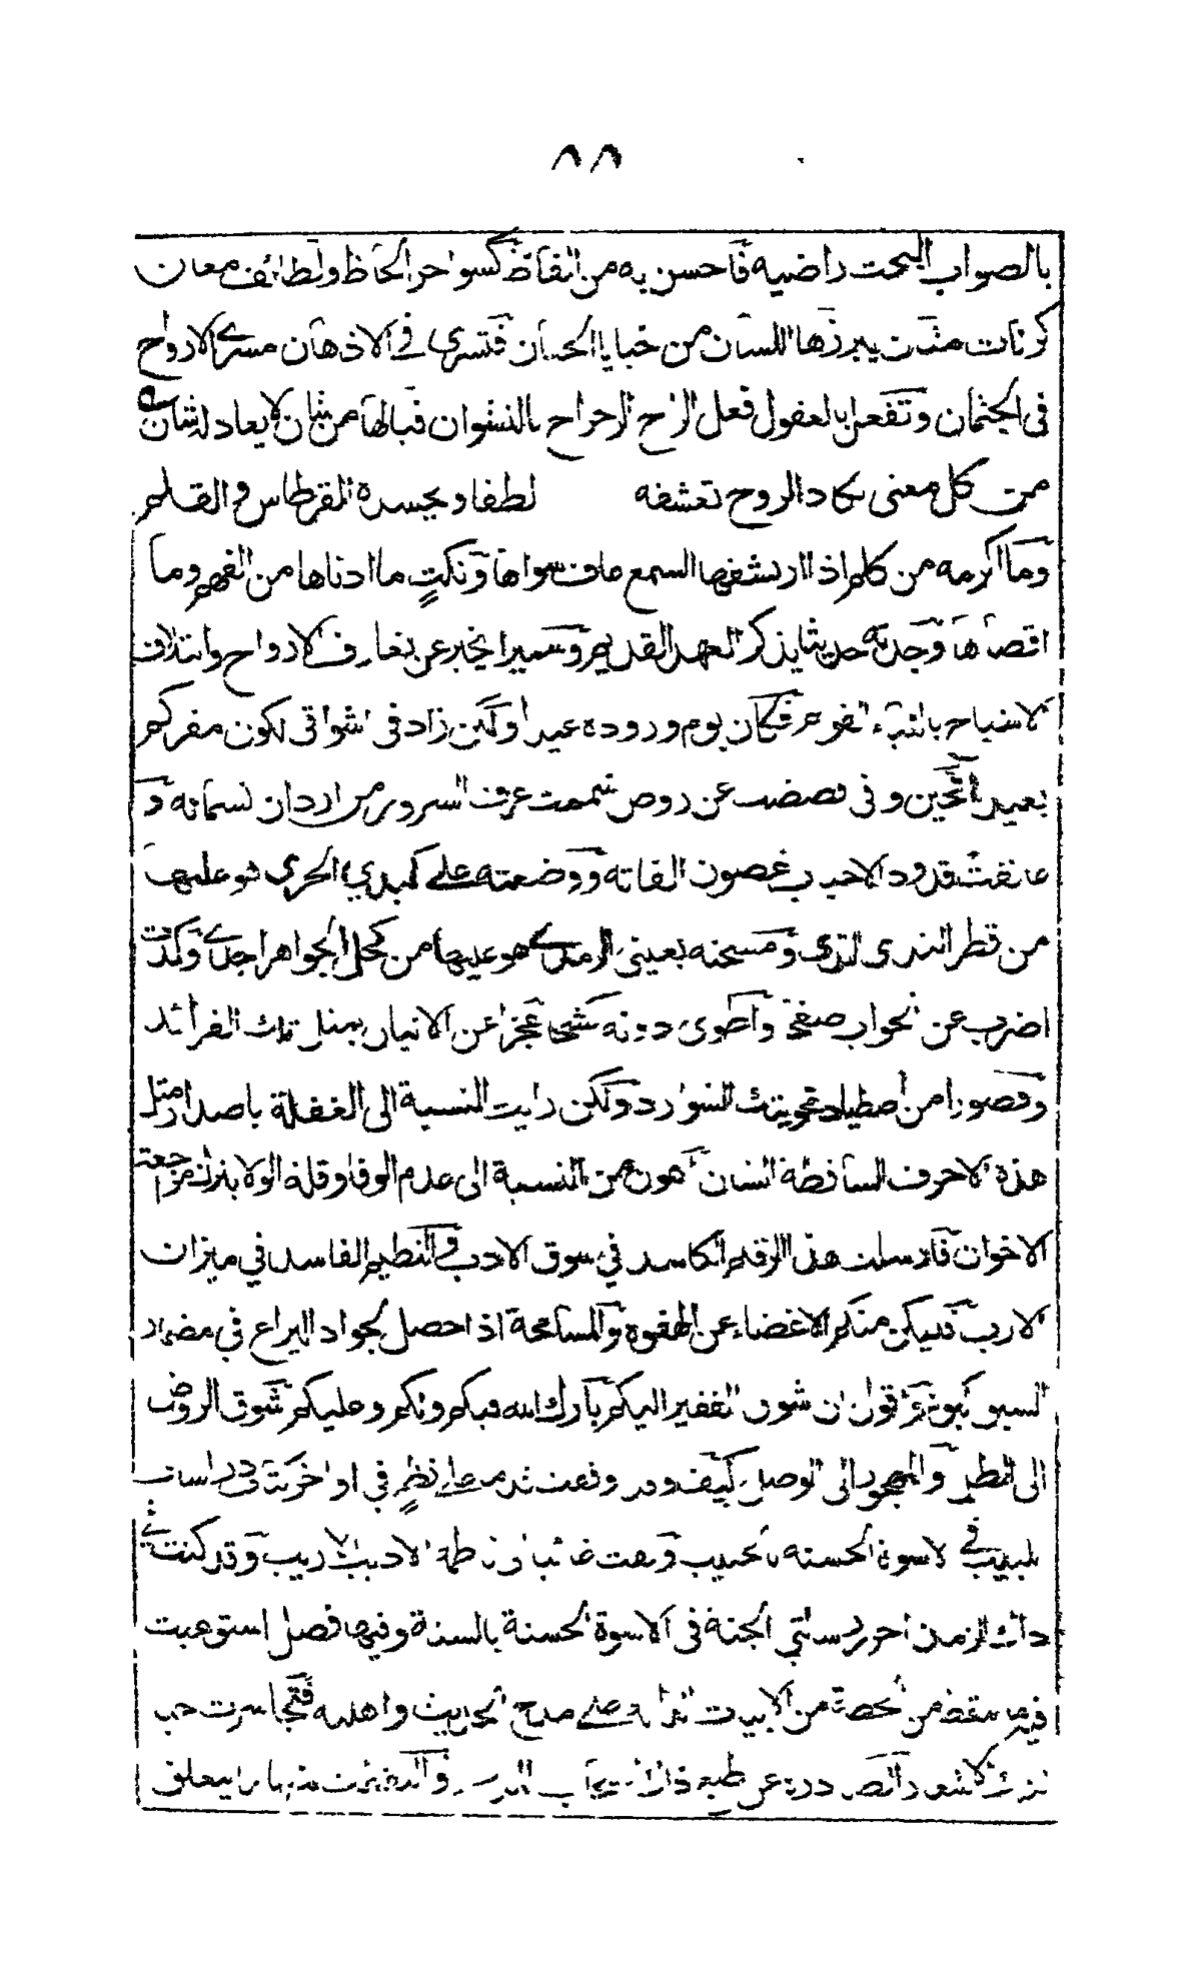 ٨٨
بالصواب البحت راضيه فاحسن به من الفاظ كسواحر الحاظ ولطائف معان
كرنات مثان يبرزها اللسان من خبايا الحسان فتسري في الاذهان مسرى الارواح
فى الجثمان وتفعل بالعقول فعل الراح الرحراح بالنشوان فيالها من شان لا يعادله شان
من كل معنى يكاد الروح تعشقه لطفا ويحسده القرطاس والقلم
وما اكرمه من كلم اذا ارتشفها السمع عاف سواها ونكتٍ ما ادناها من الفهم وما
اقصاها وجدته حديثا يذكر العهد القديم وسميرا يخبر عن تعارف الارواح وائتلاف
الاشباح فكان يوم وروده عيدا ولكن زاد فى اشواقى لكون مقركم
بعيدا فحين فضضت عن روض شممت عرف السرور من اردان نسماته و
عانقت قدود الاحباب غصون الفاته ووضعته على كبدي الحرى هو عليها
من قطر الندى اندى ومسحته بعينى الرمدى هو عليها من كحل الجواهر اجدى وكدت
اضرب عن الجواب صفحا واطوى دونه كشحا عجزا عن الاتيان بمثل تلك الفرائد
وقصورا من اصطياد تلك الشوارد ولكن رايت النسبة الى الغفلة باصدار مثل
هذه الاحرف الساقطة الشان اهون من النسبة الى عدم الوفا وقلة الولا بترك مراجعة
الاخوان فارسلت هذا الرقم الكاسد في سوق الادب والنظيم الفاسد في ميزان
الارب فليكن منكم الاغضاء عن الهفوة والمسامحة اذا حصل لجواد اليراع في مضمار
السبق كبوة ثم اقول ان شوق الفقير اليكم بارك الله فيكم ولكم وعليكم شوق الروض
الى الطل والمهجور الى الوصل كيف وقد وقفت ثم على نظمٍ في اواخر كتاب دراسات
اللبيب في الاسوة الحسنه بالحبيب ناظمه الاديب الاريب وقد كنت في
ذاك الزمن احرر رسالتي الجنة فى الاسوة الحسنة بالسنة وفيها فصل استوعبت
فيه من الابيات الدالة على مدح الحديث واهله فتجاسرت
تلك الاشعار عن طبع ذاك